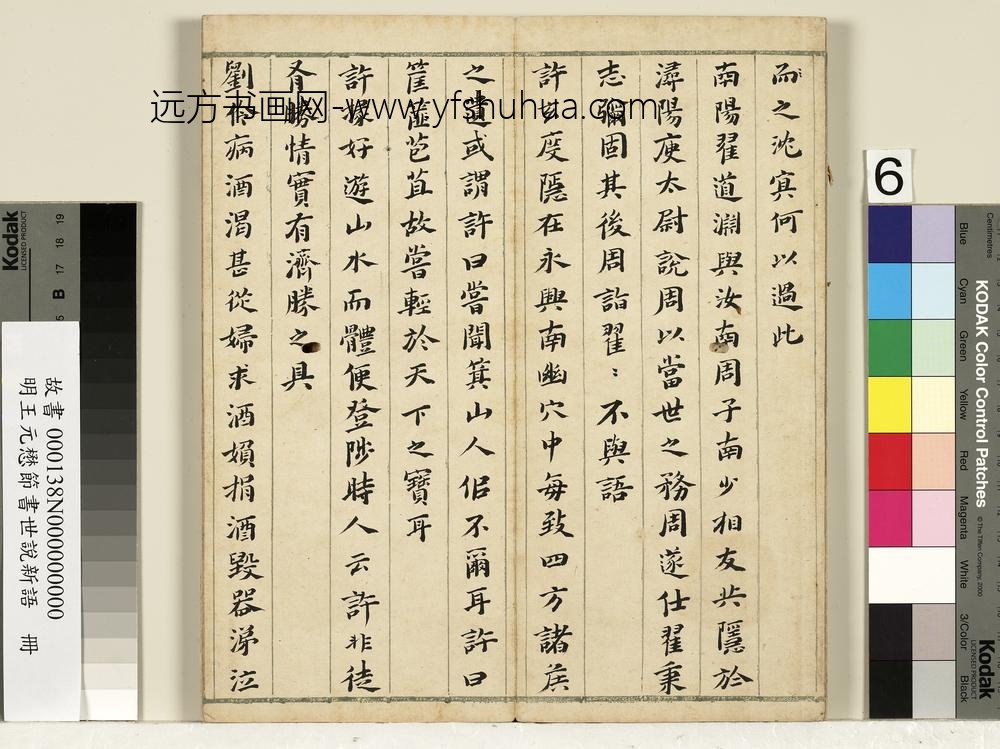 而之沈冥何以過此
南陽翟道淵與汝南周子南少相友共隱於
潯陽庾太尉說周以當世之務周遂仕翟秉
志彌固其後周詣翟:不與語
許玄度隱在永興南幽穴中每致四方諸侯
之遺或謂許曰嘗聞箕山人佀不爾耳許曰
筐篚苞苴故嘗輕於天下之寶耳
許掾好遊山水而體便登陟時人云許非徒
有勝情實有濟勝之具
劉伶病酒渴甚從婦求酒婦捐酒毀器涕泣
远方书画网-www.yfshuhua.com
故書 000138N000000000
明王元懋節書世說新語 冊
6
Kodak
LICENSED PRODUCT
B 17 18 19
KODAK Color Control Patches
© The Tiffen Company, 2000
Centimetres
Blue
Cyan
Green
Yellow
Red
Magenta
White
3/Color
Black
Kodak
LICENSED PRODUCT